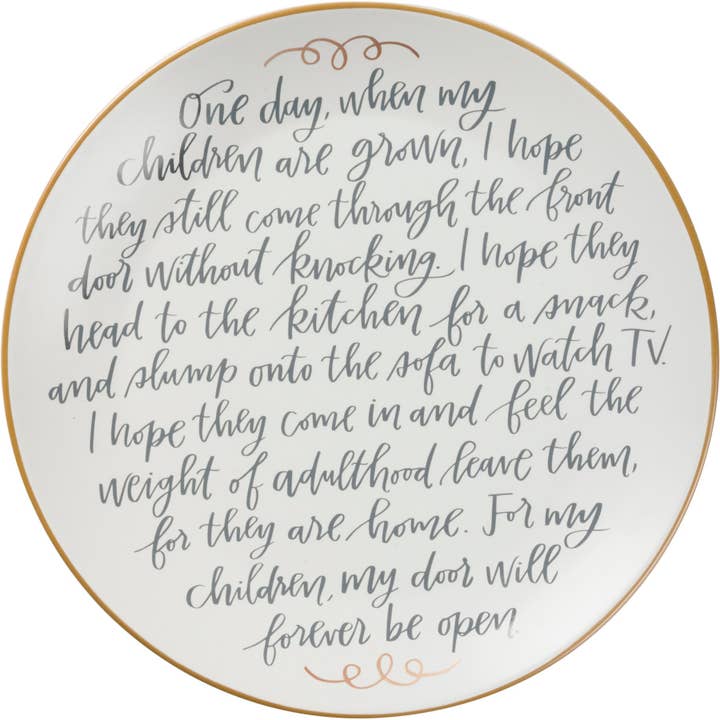 One day, when my
children are grown, I hope
they still come through the front
door without knocking. I hope they
head to the kitchen for a snack,
and slump onto the sofa to watch TV.
I hope they come in and feel the
weight of adulthood leave them,
for they are home. For my
children, my door will
forever be open.